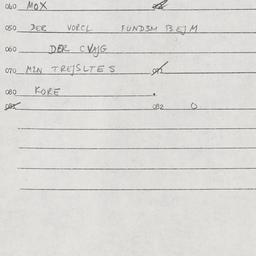 040 MOX
050 DER VORCL FUNDSM BEJM
060 DER CVAJG
070 MIN TREJSLTES
080 KORE
082 0